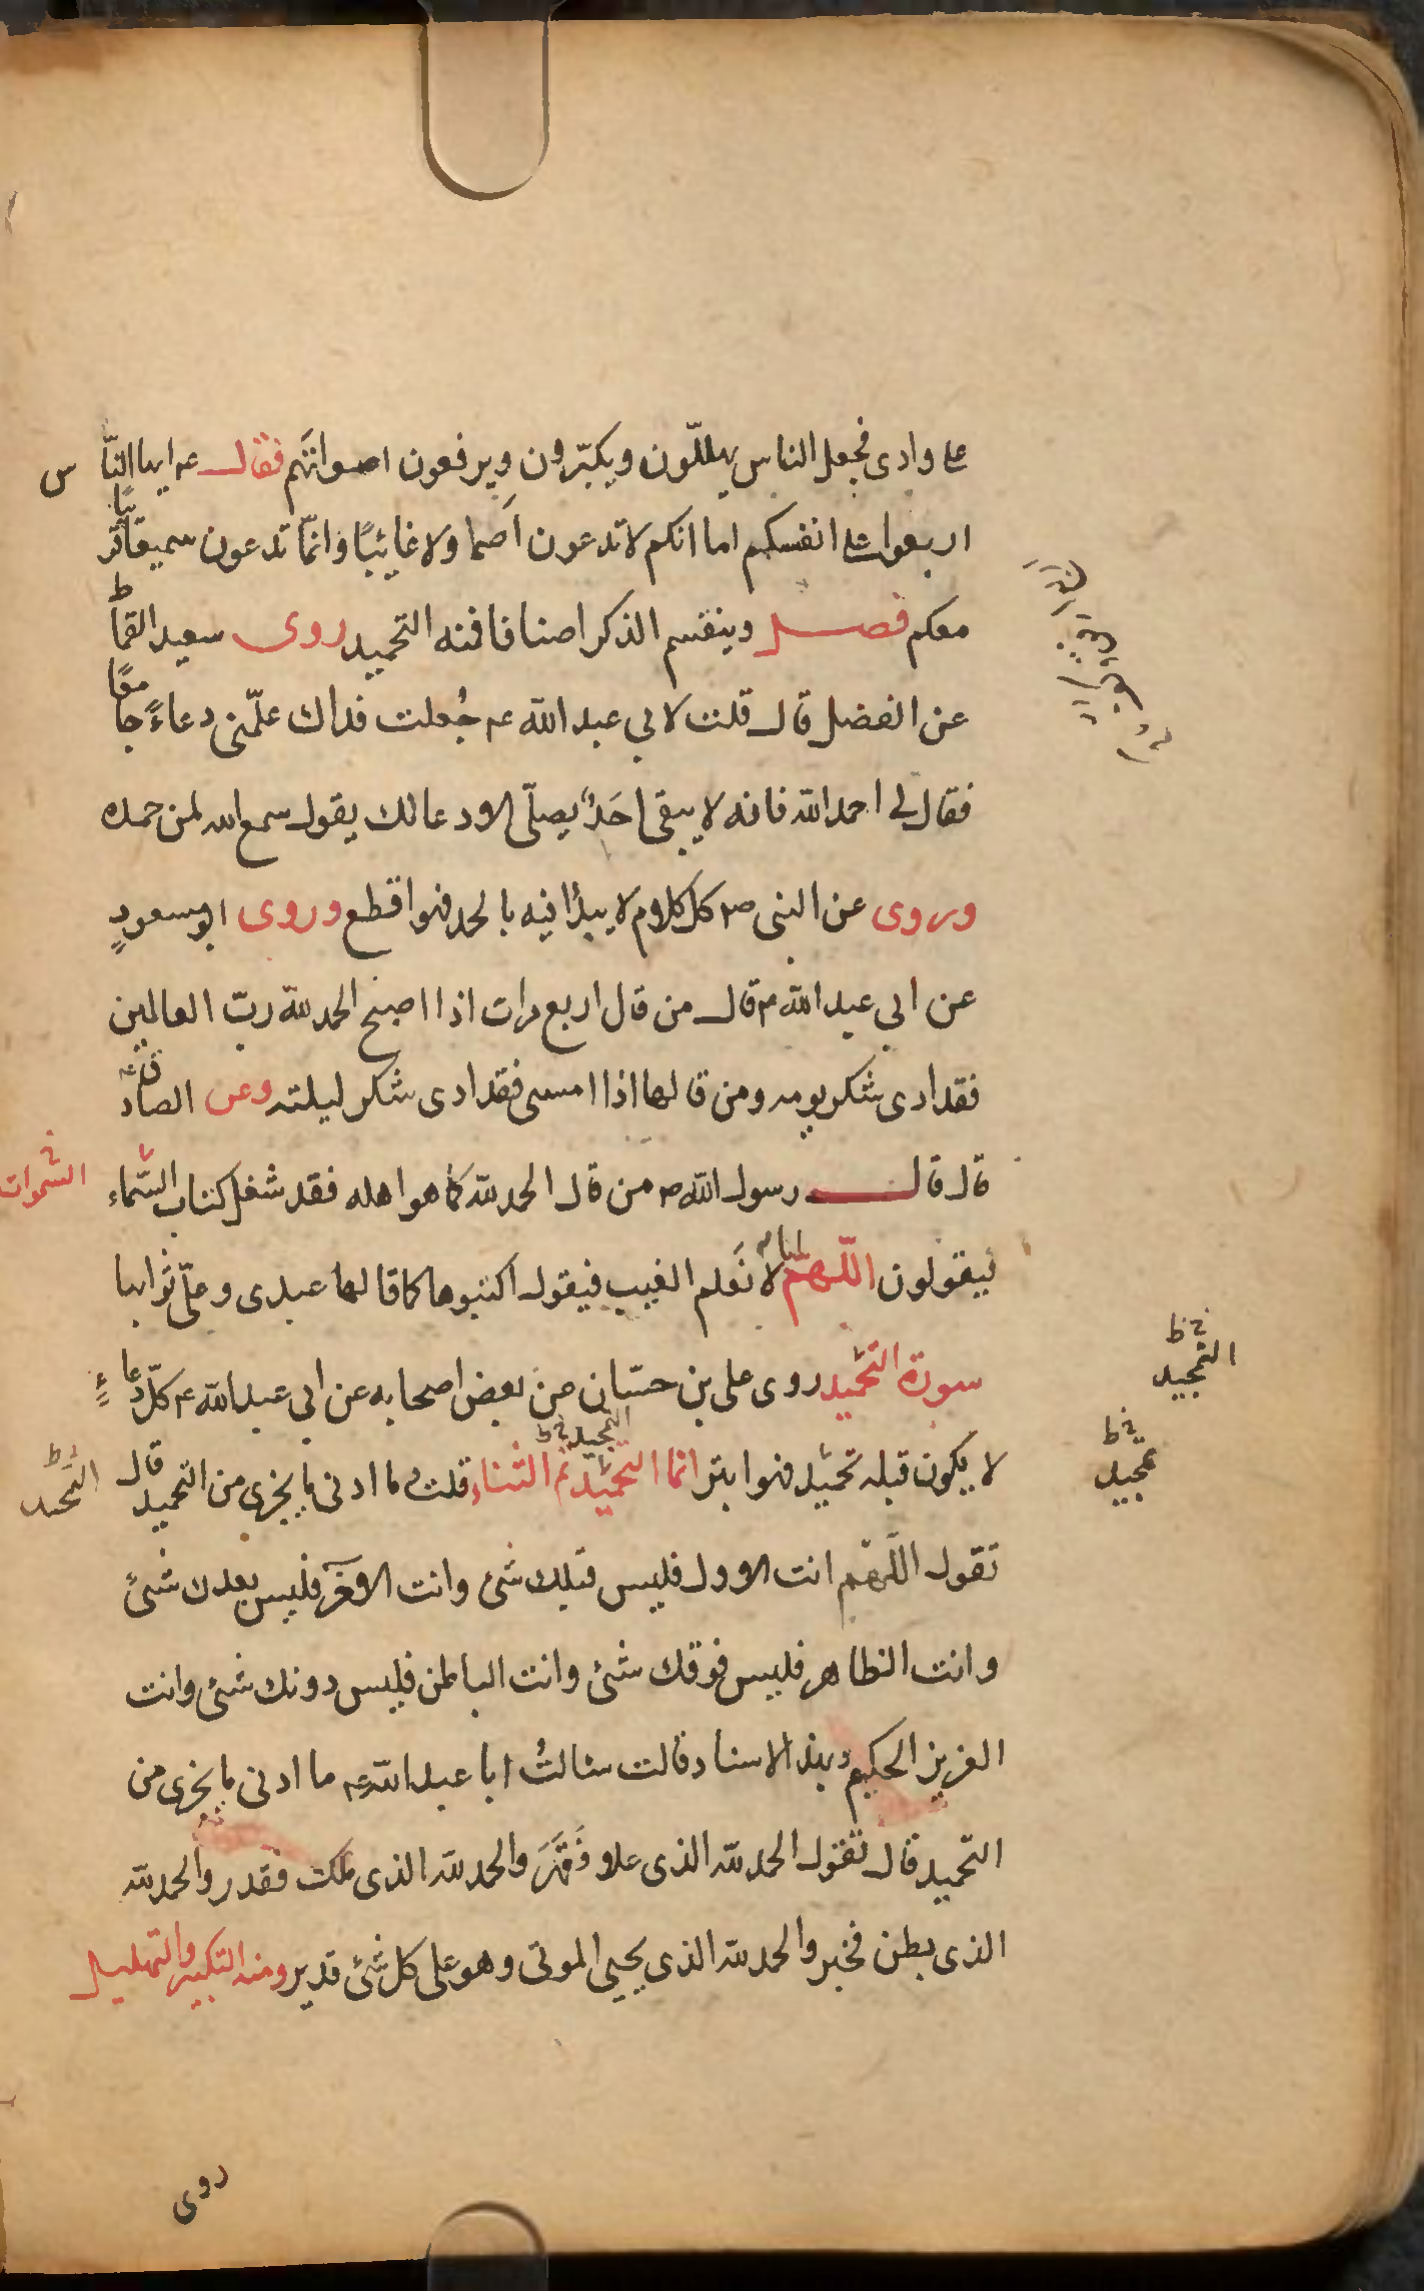 على وادى فجعل الناس يهللّون ويكبّرون ويرفعون اصواتهم فقال ع ايها النّاس
اربعوا على انفسكم اما انكم لا تدعون اصما ولا غايئبًا وانمّا تدعون سميعًا قريبًا
معكم فصل وينقسم الذكر اصنافا فمنه التحميد روى سعيد القماط
عن الفضل قال قلت لابي عبد الله ع جُعلت فداك علّمنى دعاءً جامعًا
فقال لى احمد الله فانه لا يبقى احَدٌ يصلّى الا ودعا لك يقول سمع الله لمن حمده
وروى عن النبى ص كل كلام لا يبدأ فيه بالحمد فهو اقطع وروى ابو مسعودٍ
عن ابي عبد الله ع قال من قال اربع مرات اذا اصبح الحمد لله ربّ العالمين
فقد ادى شكر يومه ومن قالها اذا امسى فقد ادى شكر ليلته وعن الصادق ع
قال قال رسول الله ص من قال الحمد لله كما هو اهله فقد شغل كتاب السّماء
السّموات
فيقولون اللّهمّ انا لا نَعلم الغيب فيقول اكتبوها كما قالها عبدى وعلىّ ثوابها
سورة التحميد روى على بن حسّان عن بعض اصحابه عن ابى عبد الله ع كلّ دعاءٍ
التمجيد خ ط
لا يكون قبله تحميد فهو ابتر انما التحميد ثم الثناء قلت ما ادنى ما يجزى من التحميد قال
تمجيد خ ط
التمجيد خ ط
التمجيد خ ط
تقول اللّهمّ انت الاول فليس قبلك شئ وانت الآخر فليس بعدك شئ
وانت الظاهر فليس فوقك شئ وانت الباطن فليس دونك شئ وانت
العزيز الحكيم وبهذا الاسناد قالت سئالتُ ابا عبد الله ع ما ادنى ما يجزى من
التحميد قال تقول الحمد لله الذى علا فَقَهَرَ والحمد لله الذى ملك فقدر والحمد لله
الذى بطن فخبر والحمد لله الذى يحيى الموتى وهو على كل شئ قدير ومنه التكبير والتهليل
روى